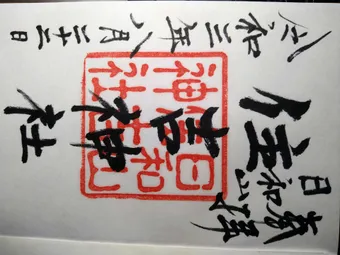 奉拝
日和山
住吉神社
日和山住吉神社
令和三年八月二十三日